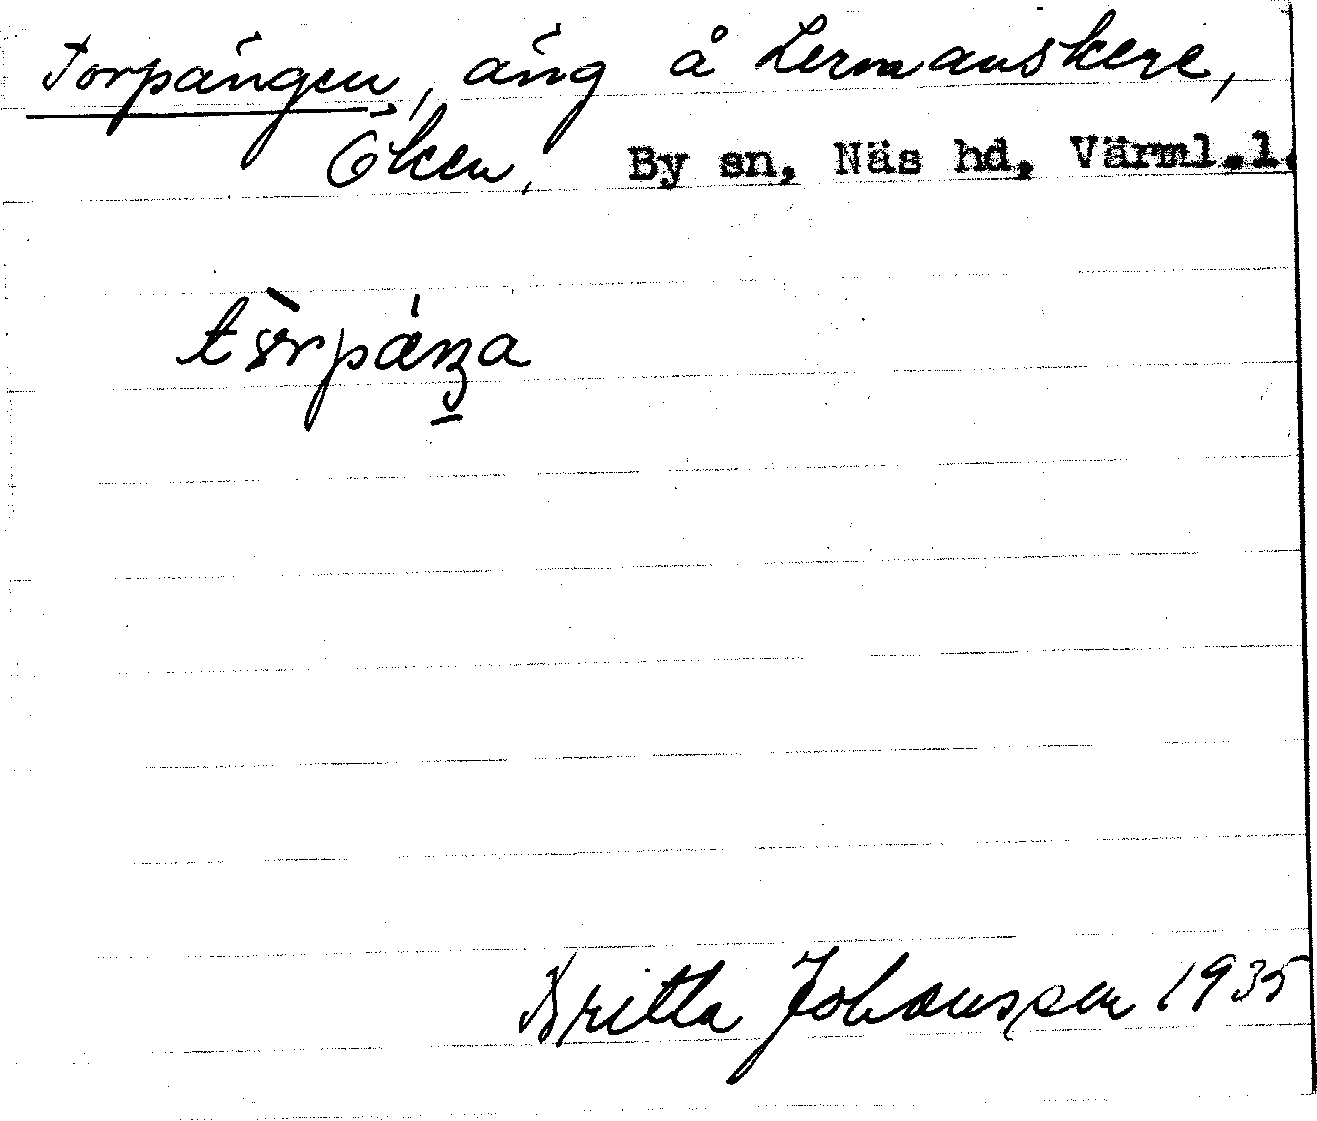 Torpängen, äng å Lermanskere,
Öken, By sn, Näs hd, Värml.l.
Britta Johansson 1935